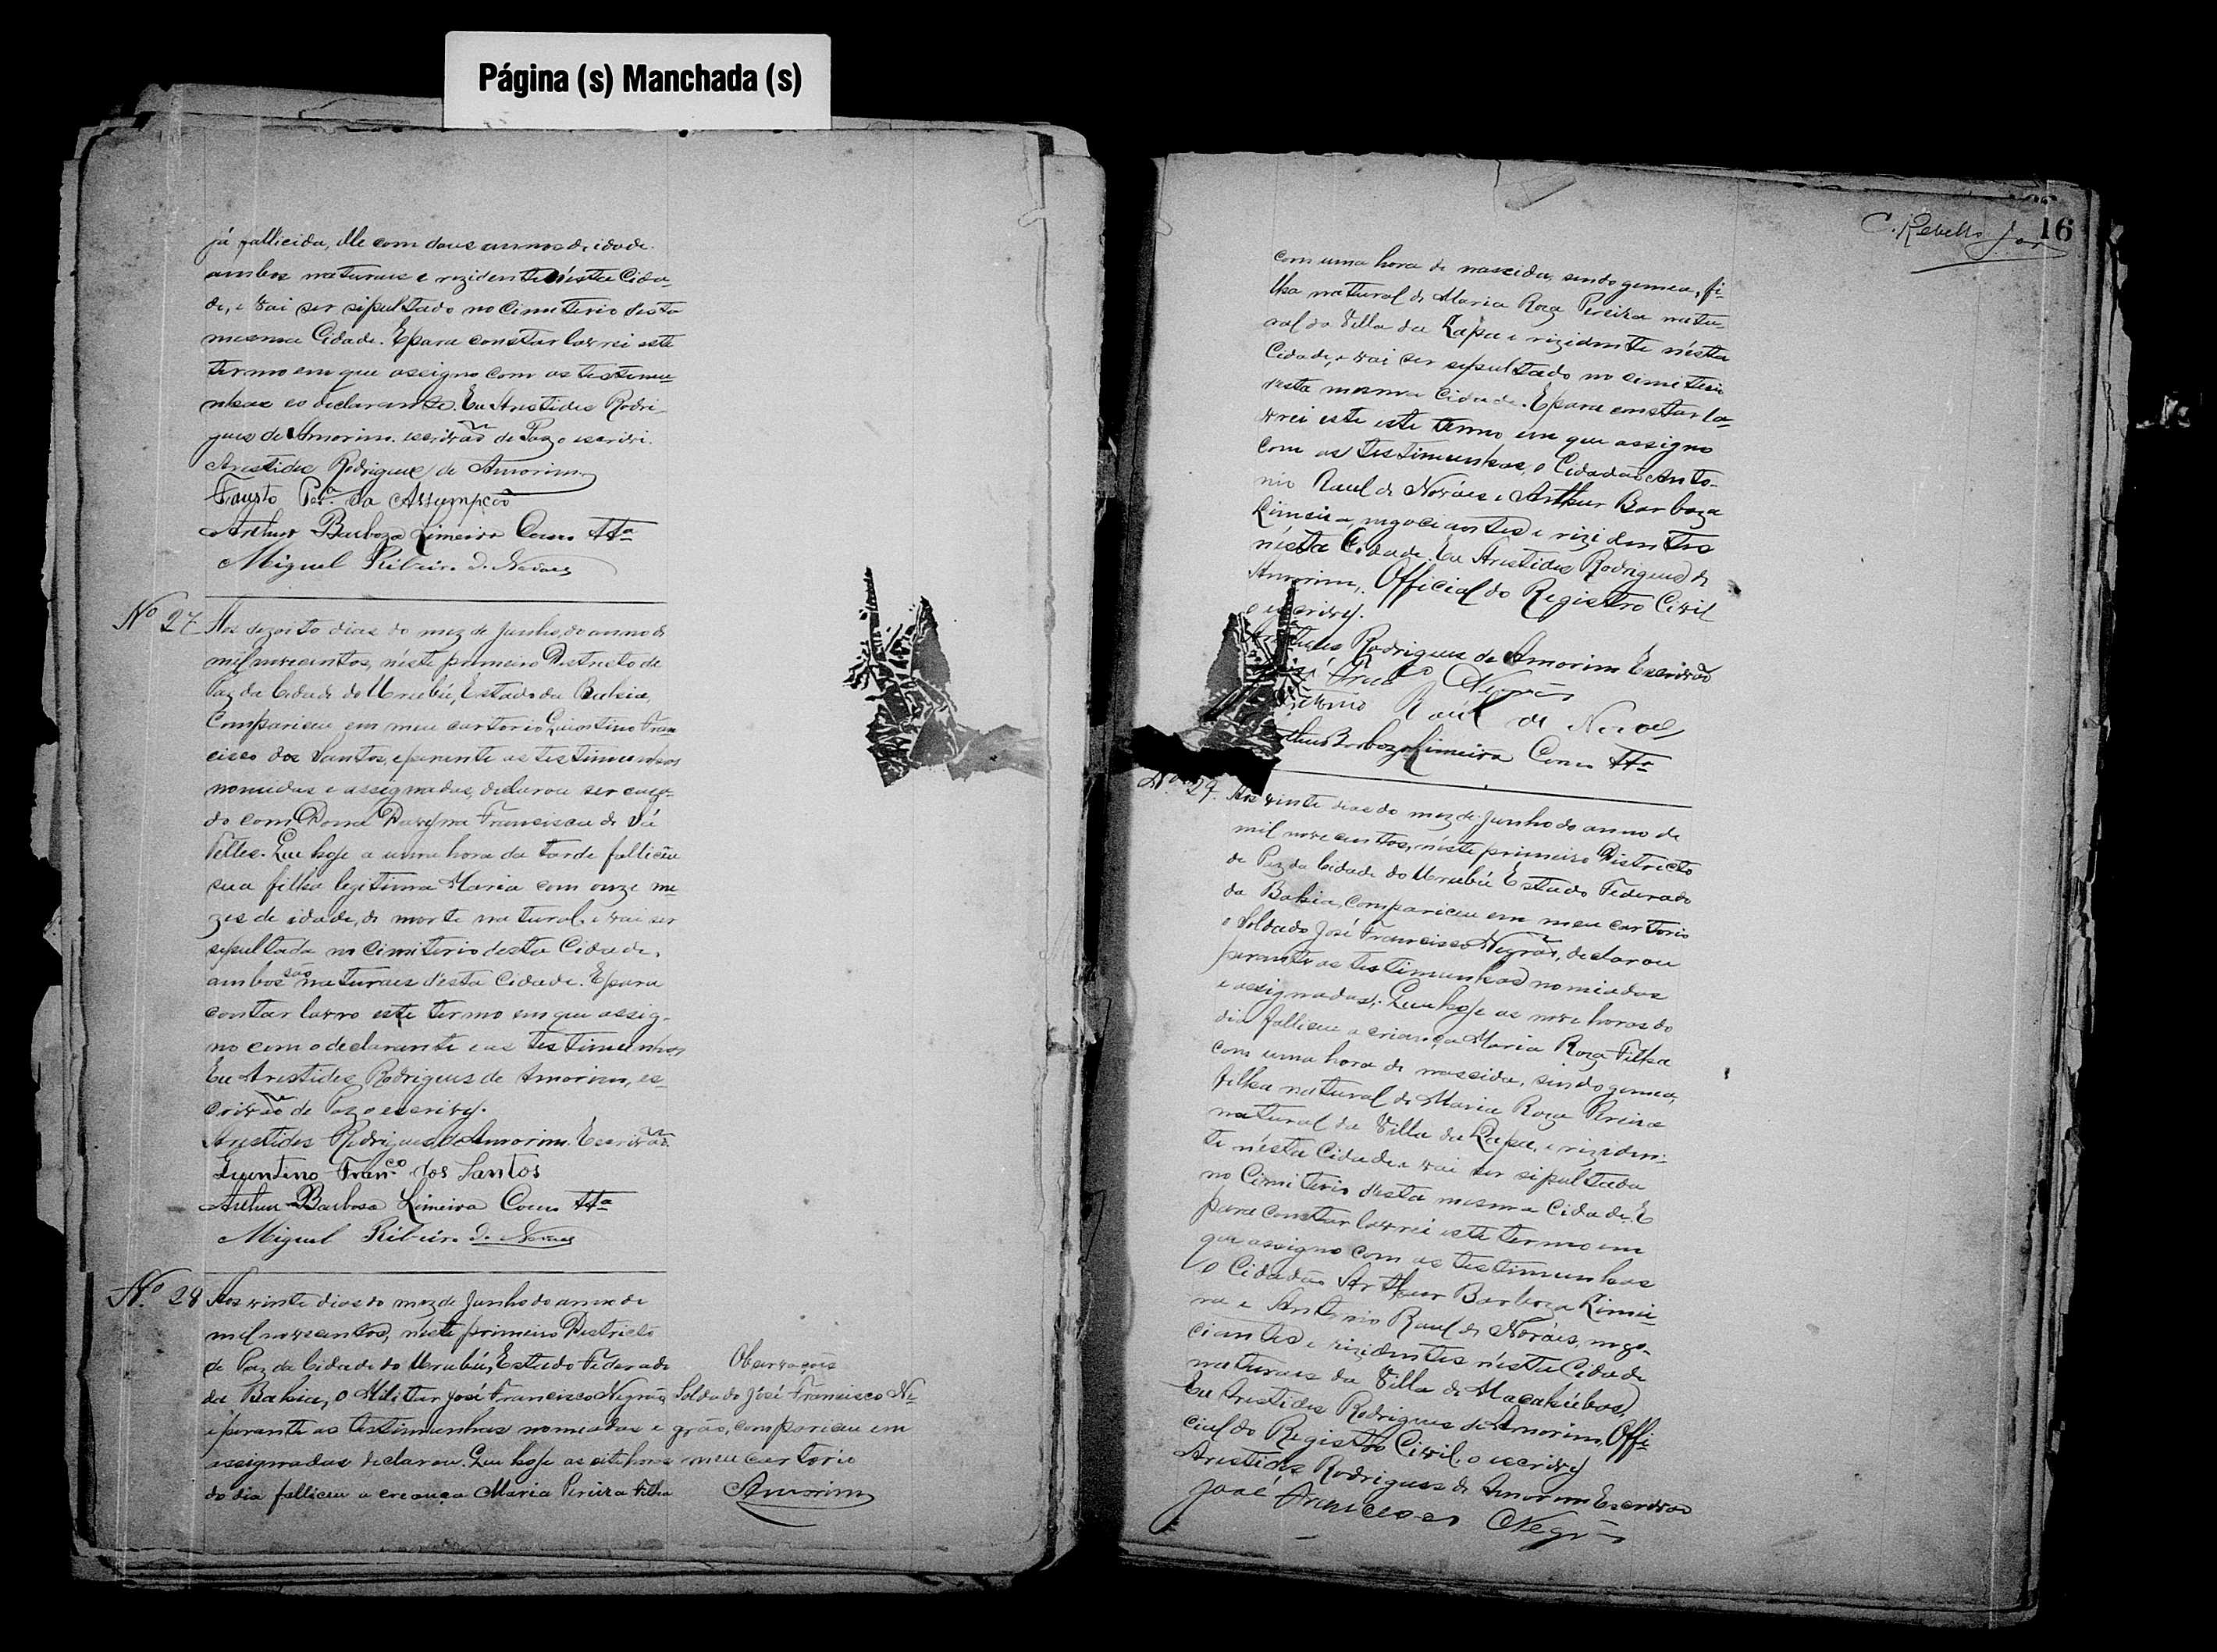 Página (s) Manchada (s)
já fallicida, elle com dous annos de idade.
ambos naturaes e rezidentes néstta Cida-
de, e vai ser sipultado no Cimiterio desta
mesma Cidade. E para constar lavrei este
termo em que assigno com as testimu-
nhas eo declarante. Eu Aristides Rodri-
gues de Amorim. escrivão de Paz o escrivi.
Aristides Rodrigues de Amorim
Fausto Per.ª da Assumpção
Arthur Barboza Limeira Como Ttª
Miguel Ribeiro de Novaes
Nº 27 Aos dezoito dias do mez de Junho, do anno de
mil novecentos, néste primeiro Districto de
Paz da Cidade do Urubú, Estado da Bahia,
Compariceu em meu cartorio Quintino Fran
cisco dos Santos, e perante as testimunhas
nomiadas e assignadas, declarou ser caza-
do com Dona Francisca de Sá
Telles. Que hoje a uma hora da tarde falliceu
sua filha legitima Maria com onze me
zes de idade, de morte natural. e vai ser
sepultada no Cimiterio desta Cidade,
ambos são naturaes désta Cidade. E para
constar lavro este termo em que assig-
no com o declarante e as testimunhas
Eu Aristides Rodrigues de Amorim, es-
crivão de Paz o escrivy.
Aristides Rodrigues de Amorim. Escrivão.
Quintino Fran.co dos Santos
Arthur Barbosa Limeira Como Ttª
Miguel Ribeiro de Novaes
Nº 28 Aos vinte dias do mez de Junho do anno de
mil novecentos, néste primeiro Districto
de Paz da Cidade do Urubú, Estado Federado
da Bahia, o Militar José Francisco Negrão,
e perante as testimunhas nomeadas e
assignadas declarou. Que hoje as oito horas
do dia falliceu a creança Maria Pereira Filha
Observaçoes
Soldado José Francisco Ne-
grão, compariceu em
meu cartorio
Amorim
C. Rebello Jor
16
com uma hora de nascida, sendo gemea, fi-
lha natural de Maria Roza Pereira natu-
ral da Villa da Lapa e rizidente nésta
Cidade, e vai ser sepultado no cimiterio
desta mesma Cidade. E para constar la-
vrei este este termo em que assigno
com as testimunhas, o Cidadão Anto-
nio Raul de Nováes e Arthur Barboza
Limeira, negociantes e rizidentes
nésta Cidade. Eu Aristides Rodrigues de
Amorim, Official do Registro Civil
o escrivy.
Rodrigues de Amorim Escrivão
Negrão
Raúl de Novaes
Barboza Limeira Como Ttª
Nº 29. Aos vinte dias do mez de Junho do anno de
mil novecentos, néste primeiro Districto
de Paz da Cidade do Urubú Estado Federado
da Bahia, compariceu em meu cartorio
o Soldado José Francisco Negrão, declarou
perante as testimunhas nomiadas
e assignadas. Que hoje as nove horas do
dia falliceu a criança Maria Roza Filha
com uma hora de nascida, sendo gemea,
filha natural de Maria Roza Pereira
natural da Villa da Lapa, e riziden-
te nésta Cidade e vai ser sipultada
no Cimiterio désta mesma Cidade. E
para constar lavrei este termo em
que assigno com as testimunhas
o Cidadão Arthur Barboza Limei-
ra e Antonio Raul de Nováes, nego-
ciantes e rizidentes nésta Cidade
naturaes da Villa de Macahúbas,
Eu Aristides Rodrigues de Amorim, Offi-
cial do Registro Civil, o escrivy
Aristides Rodrigues de Amorim Escrivão
José Francisco Negrão